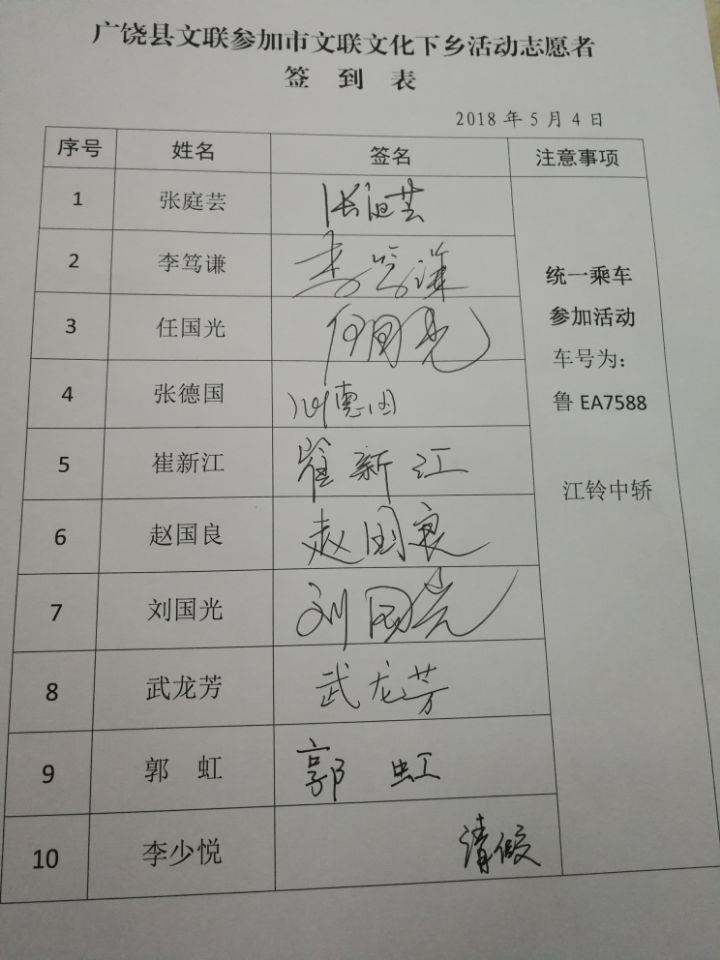 广饶县文联参加市文联文化下乡活动志愿者
签 到 表
2018 年 5 月 4 日
序号 姓名 签名 注意事项
1 张庭芸 张庭芸
2 李笃谦 李笃谦
3 任国光 任国光
4 张德国 张德国
5 崔新江 崔新江
6 赵国良 赵国良
7 刘国光 刘国光
8 武龙芳 武龙芳
9 郭 虹 郭 虹
10 李少悦 请假
统一乘车
参加活动
车号为：
鲁 EA7588
江铃中轿